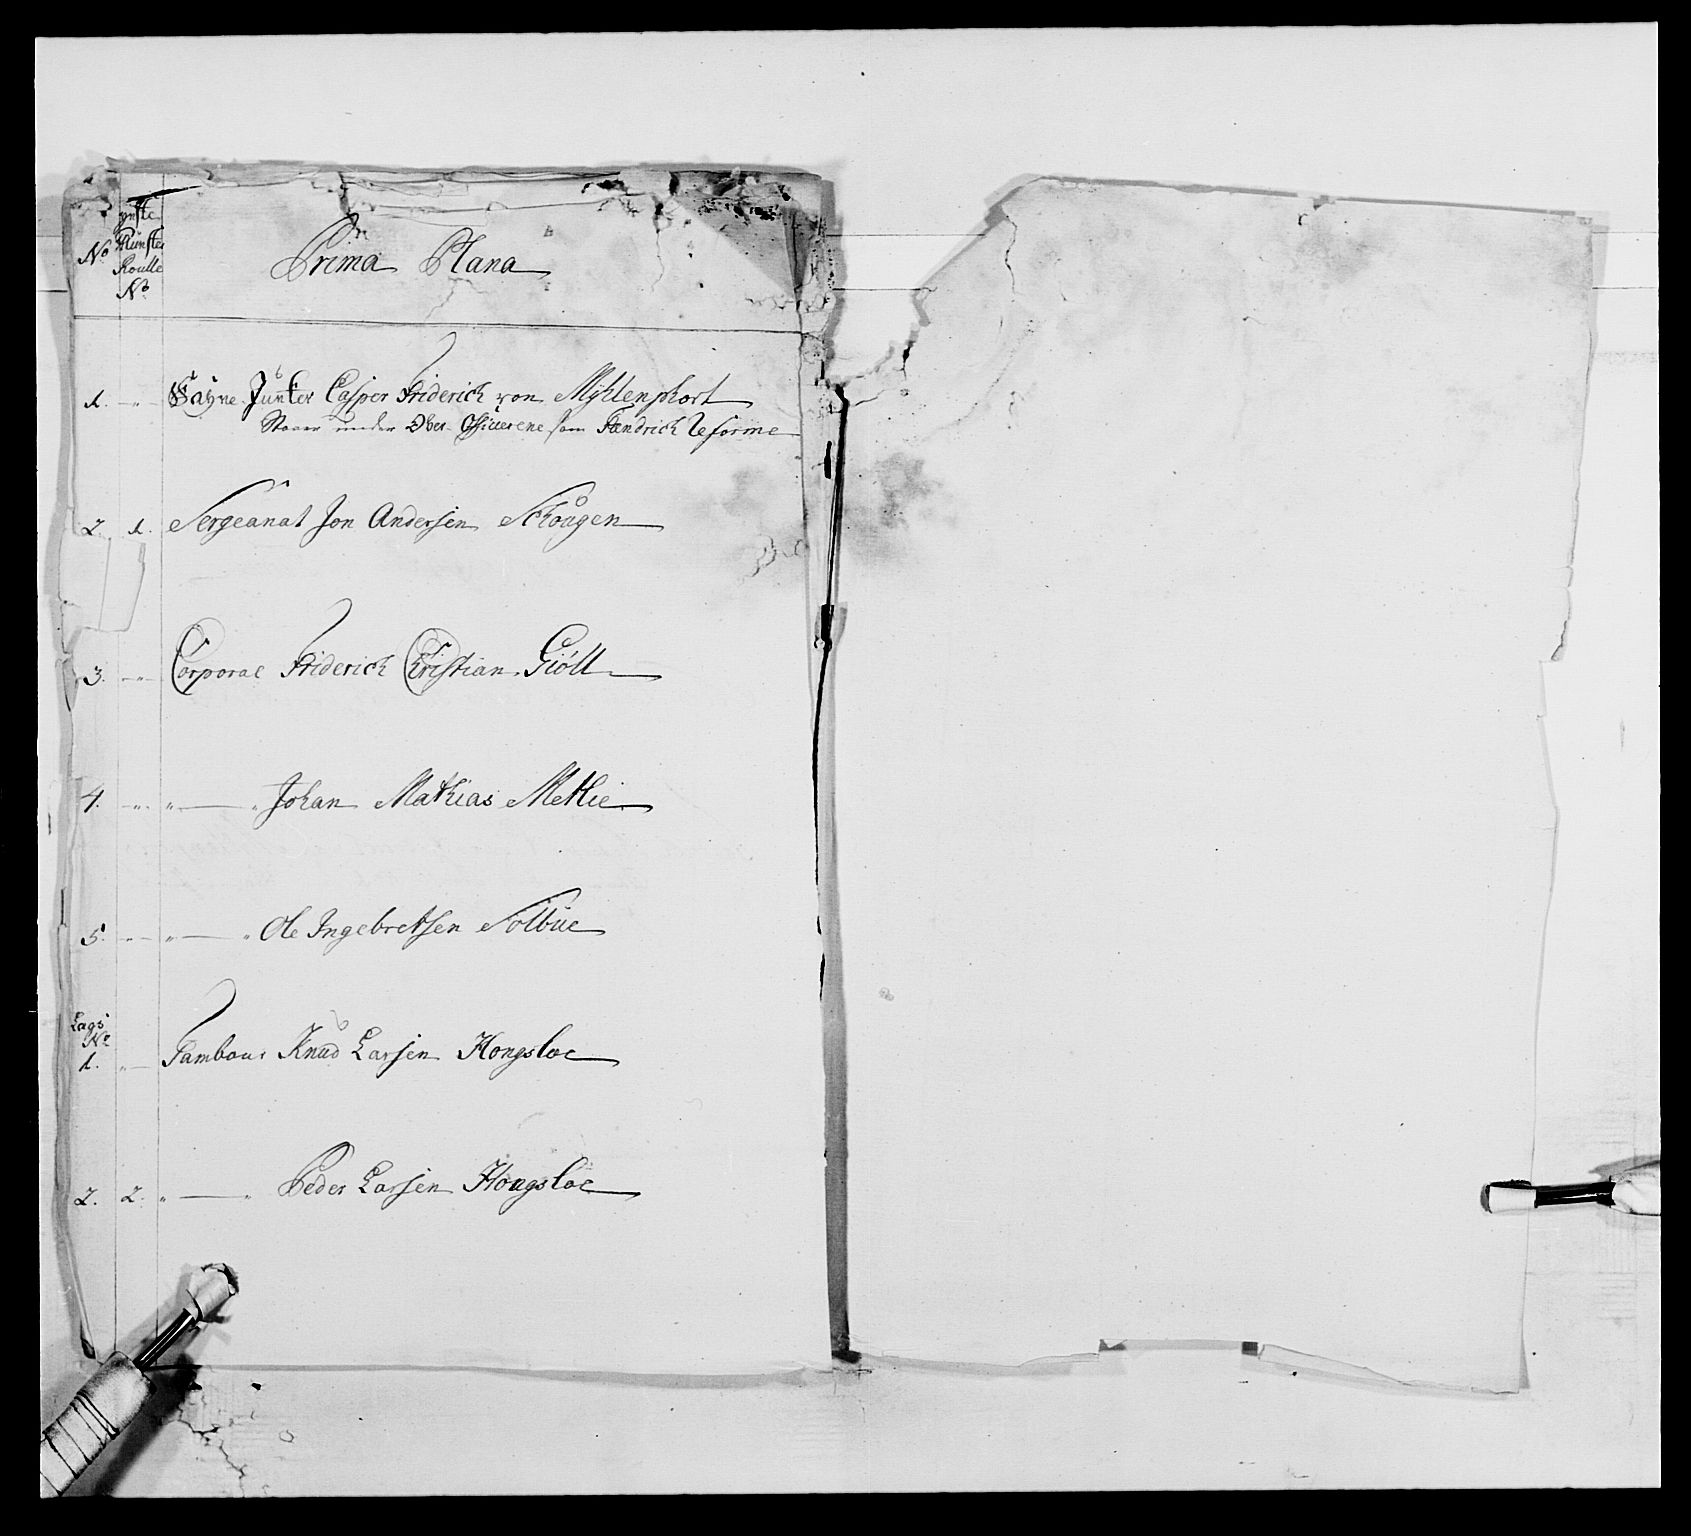 No
Münster
Roulle
No
Prima Plana
1. " Fahne Junker Casper Friderich von Mÿhlenphort
Staaer under Ober Officerene som Fændrich Reforme
2. 1. Sergeanat Jon Andersen Schougen
3. " Corporal Friderich Christian Giöll
4. " " " Johan Mathias Methie
5. " " " Ole Ingebretsen Solbüe
Lags
No
1. " Tambour Knud Larsen Hongsloe
2. 2. " " Peder Larsen Hongsloe